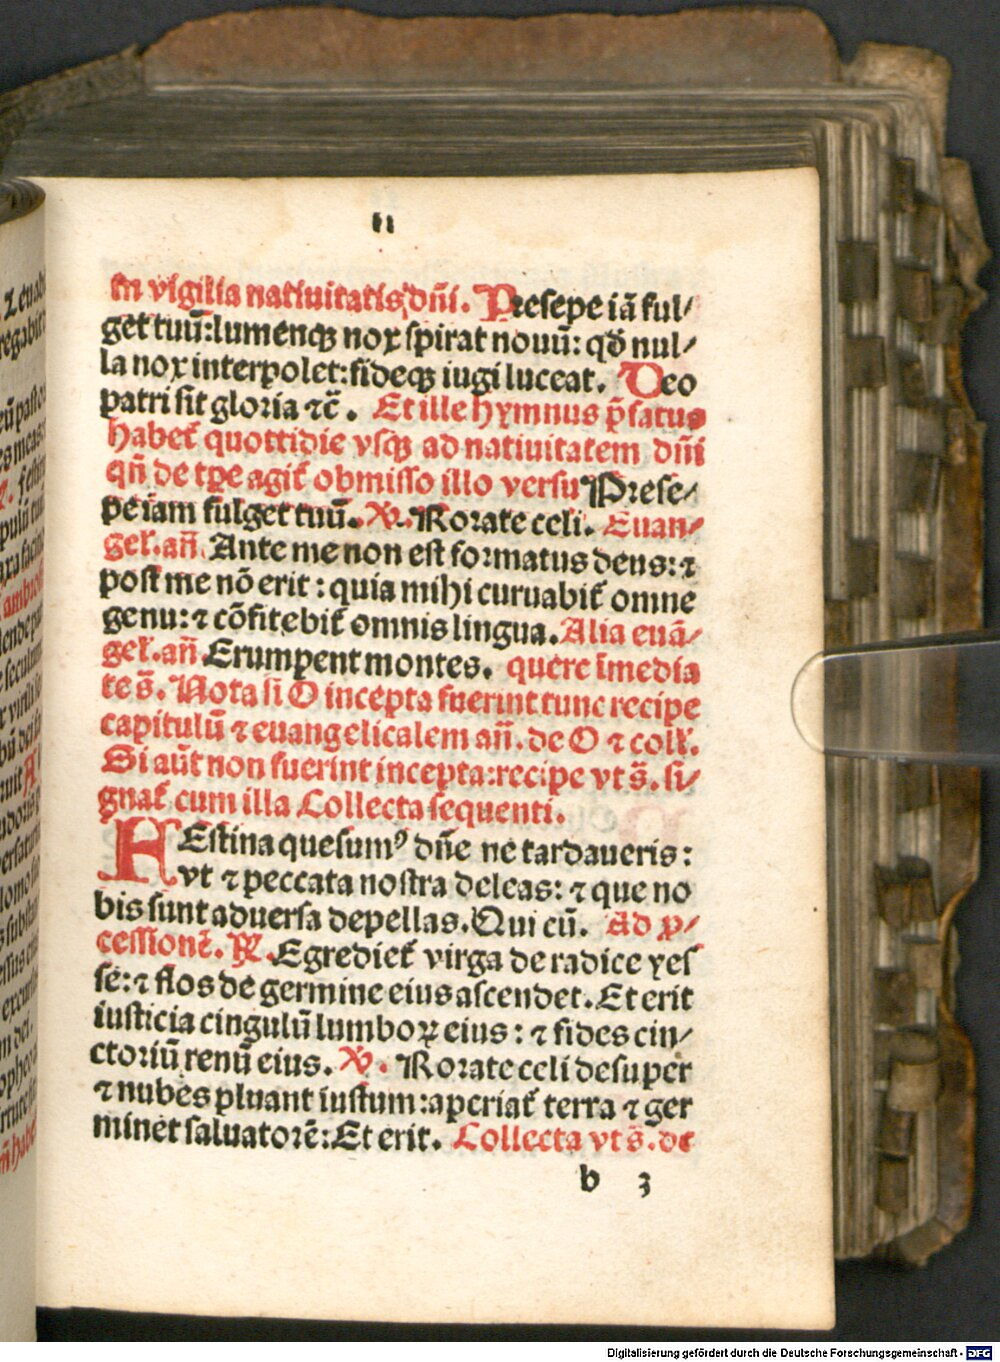 ıı
In vigilia natiuitatis dñi. Presepe iã ful⸗
get tuũ: lumenqꝫ nox spirat nouũ: qđ nul⸗
la nox interpolet: fideqꝫ iugi luceat. Deo
patri sit gloria ⁊c̃. Et ille hymnus p̃fatus
habet᷑ quottidie vsqꝫ ad natiuitatem dñi
qñ de tp̃e agit᷑ obmisso illo versu Prese⸗
pe iam fulget tuũ. ℣. Rorate celi. Euan⸗
gel̃. añ. Ante me non est formatus deus: ⁊
post me nõ erit: quia mihi curuabit᷑ omne
genu: ⁊ cõfitebit᷑ omnis lingua. Alia euã⸗
gel̃. añ Erumpent montes. quere ĩmedia
te s̃. Nota si O incepta fuerint tunc recipe
capitulũ ⁊ euangelicalem añ. de O ⁊ coll̃.
Si aũt non fuerint incepta: recipe vt s̃. si⸗
gnat᷑ cum illa Collecta sequenti.
FEstina quesumꝰ dñe ne tardaueris:
vt ⁊ peccata nostra deleas: ⁊ que no
bis sunt aduersa depellas. Qui cũ. Ad ꝓ⸗
cessionẽ. ℟. Egrediet᷑ virga de radice yes
se: ⁊ flos de germine eius ascendet. Et erit
iusticia cingulũ lumboꝝ eius: ⁊ fides cin⸗
ctoriũ renũ eius. ℣. Rorate celi desuper
⁊ nubes pluant iustum: aperiat᷑ terra ⁊ ger
minet saluatorẽ: Et erit. Collecta vt s̃. de
b 3
Digitalisierung gefördert durch die Deutsche Forschungsgemeinschaft - DFG